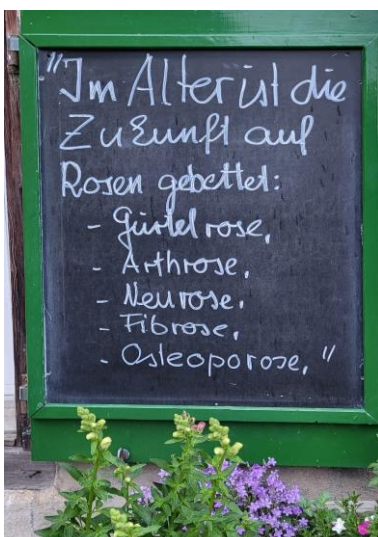 "Im Alter ist die
Zukunft auf
Rosen gebettet:
- Gürtelrose,
- Arthrose,
- Neurose,
- Fibrose,
- Osteoporose,"